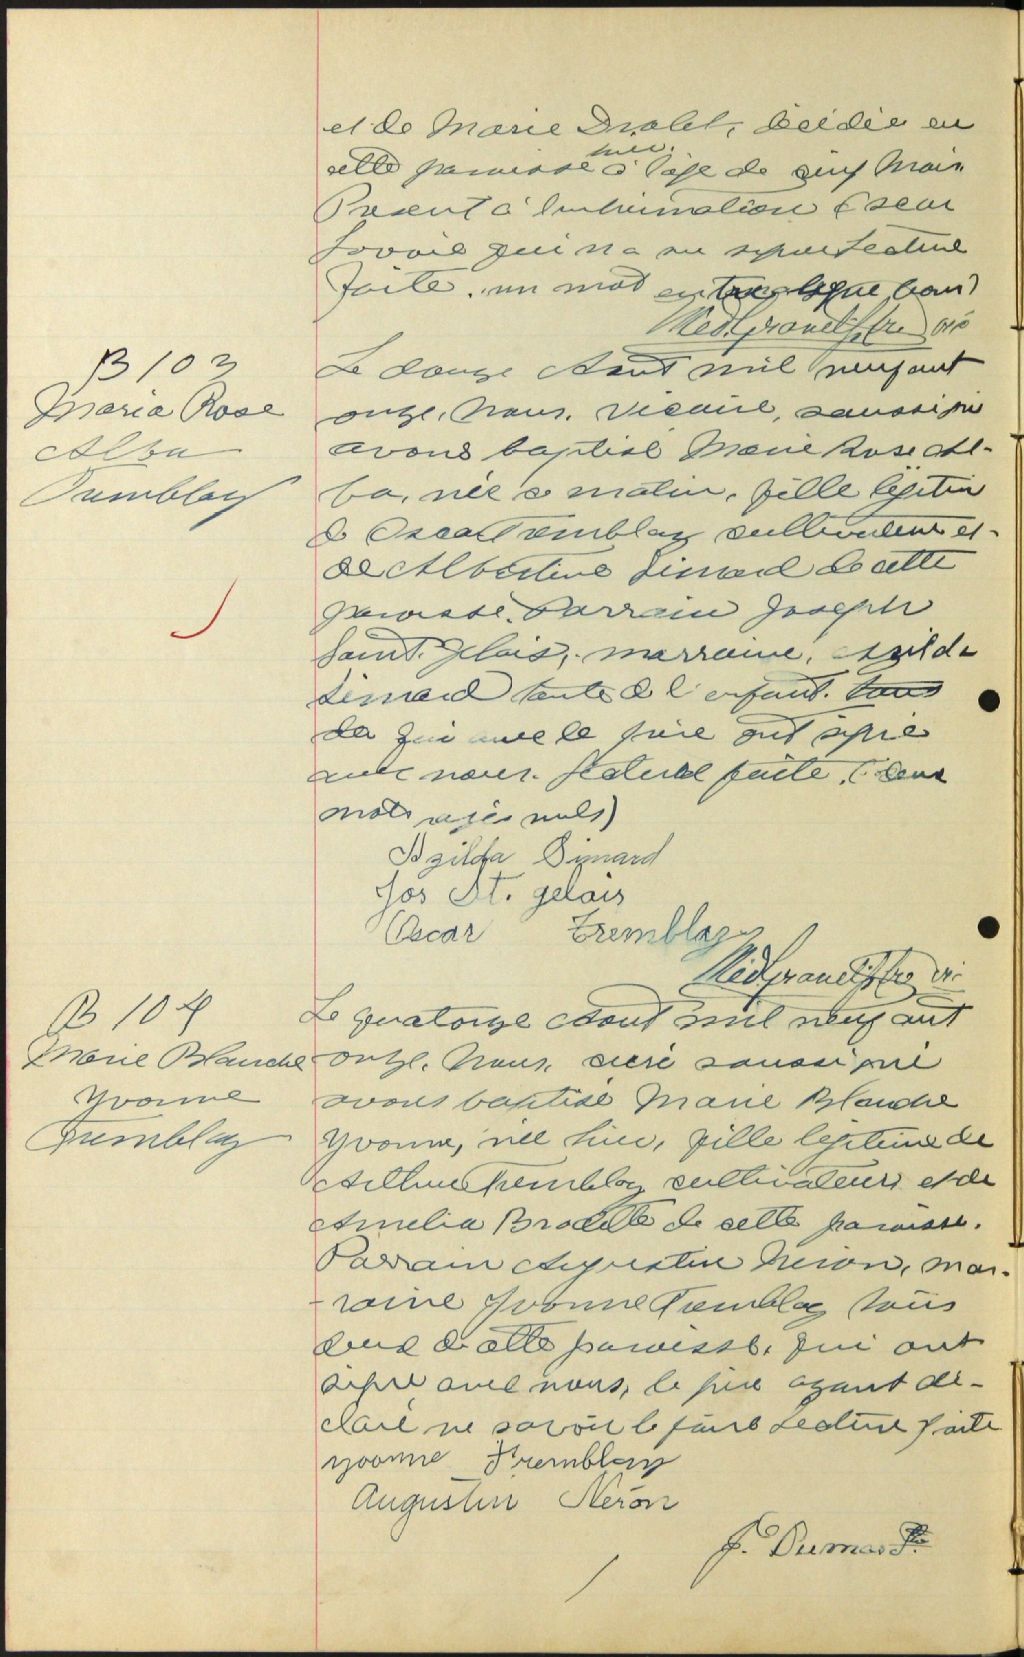 et de Marie Drolet, décédée en
hier
cette paroisse à l'age de cinq mois
Present à l'inhumation Oscar
Savoie qui n'a su signer Lecture
faite. un mot entre ligne bon)
Ptre vic
B 103
Maria Rose
Alba
Tremblay
Le douze Aout mil neuf cent
onze, Nous, vicaire, soussigné
avons baptisé Marie Rose Al-
ba, née ce matin, fille légitime
de Oscar Tremblay cultivateur et
de Albertine Simard de cette
paroisse. Parrain Joseph
Saint. Gelais, marraine, Azilda
Simard tante de l'enfant. tous
de qui avec le père ont signé
avec nous. Lecture faite. (deux
mots rayés nuls)
Azilda Simard
Jos St. gelais
Oscar Tremblay
Ptre vic
B 104
Marie Blanche
Yvonne
Tremblay
Le quatorze Aout mil neuf cent
onze, Nous, curé soussigné
avons baptisé Marie Blanche
Yvonne, née hier, fille légitime de
Arthur Tremblay cultivateur et de
Amelia Brodette de cette paroisse.
Parrain Augustin Neron, mar-
-raine Yvonne Tremblay tous
deux de cette paroisse, qui ont
signé avec nous, le père ayant dé-
claré ne savoir le faire Lecture faite
yvonne Tremblay
Augustin Néron
J. E. Dumas Ptre